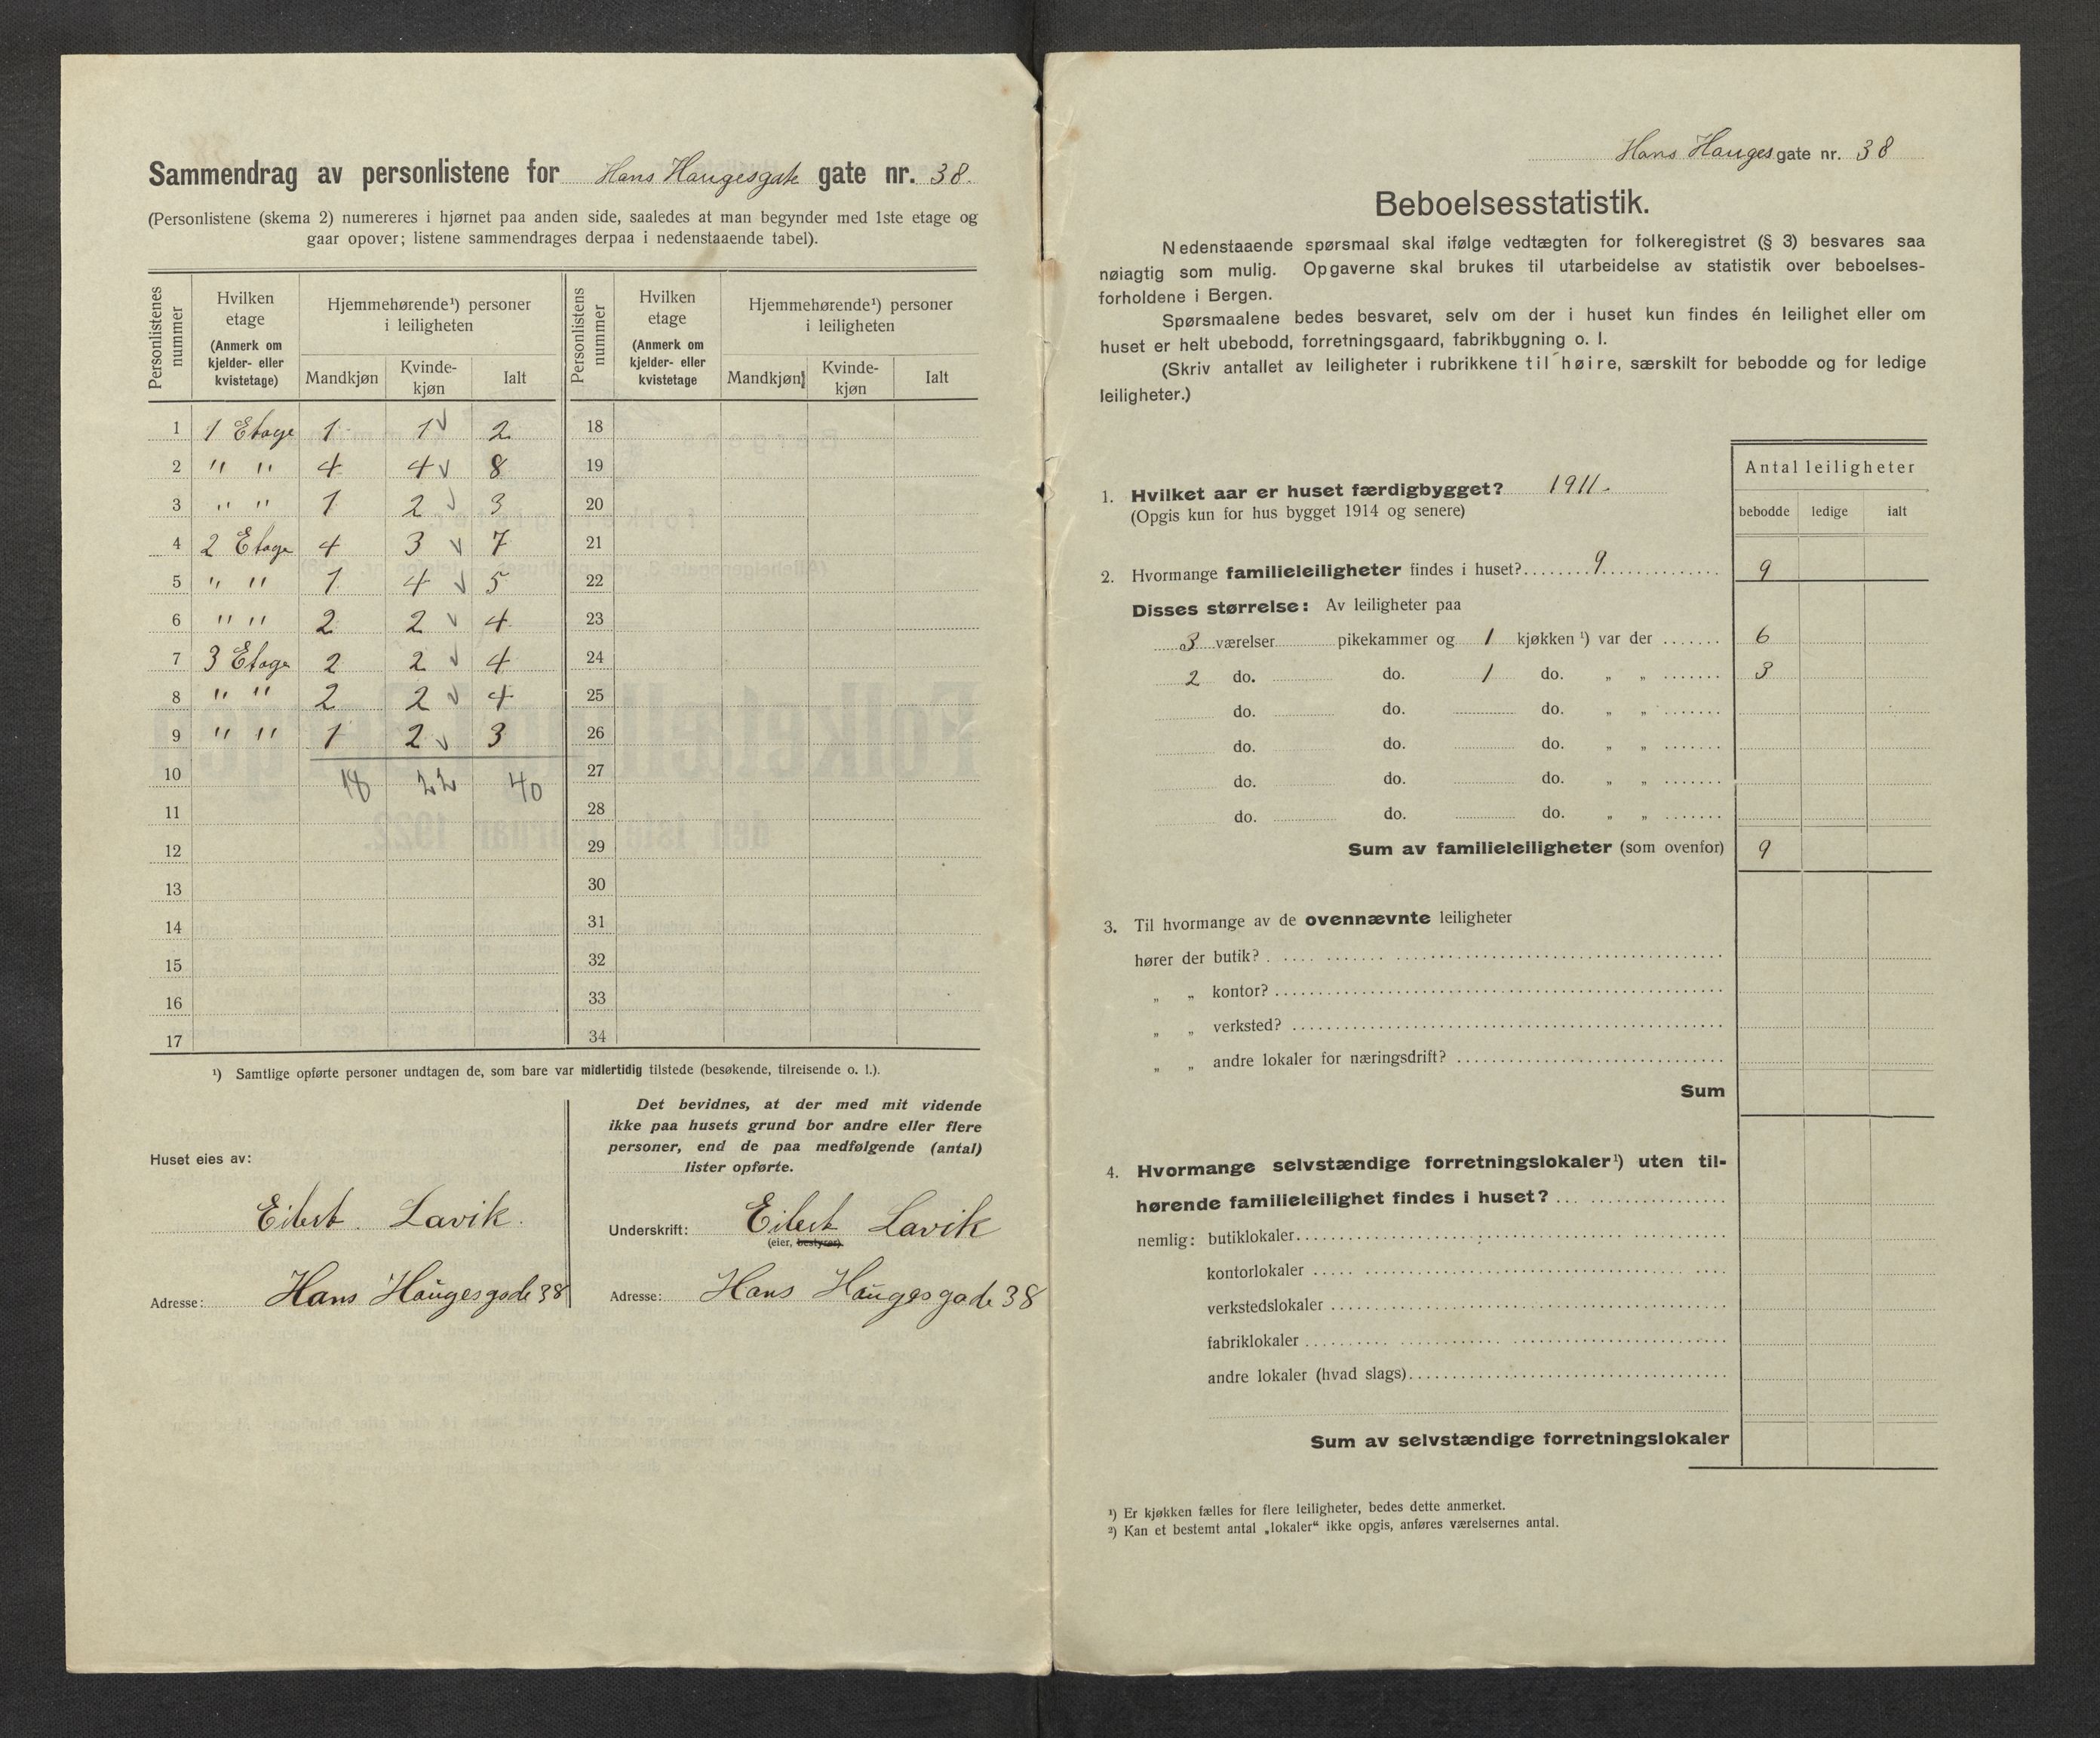 Sammendrag av personlistene for Hans Haugesgate gate nr. 38.
(Personlistene (skema 2) numereres i hjørnet paa anden side, saaledes at man begynder med 1ste etage og
gaar opover; listene sammendrages derpaa i nedenstaaende tabel).
Personlistenes nummer | Hvilken etage (Anmerk om kjelder- eller kvistetage) | Hjemmehørende¹) personer i leiligheten | Mandkjøn | Kvinde-kjøn | Ialt
Personlistens nummer | Hvilken etage (Anmerk om kjelder- eller kvistetage | Hjemmehørende¹) personer i leiligheten | Mandkjøn | Kvinde-kjøn | Ialt
1 1 Etage 1 1 2 18
2 " " 4 4 8 19
3 " " 1 2 3 20
4 2 Etage 4 3 7 21
5 " " 1 4 5 22
6 " " 2 2 4 23
7 3 Etage 2 2 4 24
8 " " 2 2 4 25
9 " " 1 2 3 26
10 18 22 40 27
11 28
12 29
13 30
14 31
15 32
16 33
17 34
¹) Samtlige opførte personer undtagen de, som bare var midlertidig tilstede (besøkende, tilreisende o. l.).
Huset eies av:
Eilert Lavik.
Adresse: Hans Haugesgade 38
Det bevidnes, at der med mit vidende
ikke paa husets grund bor andre eller flere
personer, end de paa medfølgende (antal)
lister opførte.
Underskrift: Eilert Lavik
(eier, bestyrer).
Adresse: Hans Haugesgade 38
Hans Hauges gate nr. 38
Beboelsesstatistik.
Nedenstaaende spørsmaal skal ifølge vedtægten for folkeregistret (§ 3) besvares saa
nøiagtig som mulig. Opgaverne skal brukes til utarbeidelse av statistik over beboelses-
forholdene i Bergen.
Spørsmaalene bedes besvaret, selv om der i huset kun findes én leilighet eller om
huset er helt ubebodd, forretningsgaard, fabrikbygning o. l.
(Skriv antallet av leiligheter i rubrikkene til høire, særskilt for bebodde og for ledige
leiligheter.)
Antal leiligheter
bebodde ledige ialt
1. Hvilket aar er huset færdigbygget? 1911.
(Opgis kun for hus bygget 1914 og senere)
2. Hvormange familieleiligheter findes i huset? 9 9
Disses størrelse: Av leiligheter paa
3 værelser pikekammer og 1 kjøkken ¹) var der 6
2 do. do. 1 do. „ „ 3
do. do. do. „ „
do. do. do. „ „
do. do. do. „ „
do. do. do. „ „
Sum av familieleiligheter (som ovenfor) 9
3. Til hvormange av de ovennævnte leiligheter
hører der butik?
„ „ kontor?
„ „ verksted?
„ „ andre lokaler for næringsdrift?
Sum
4. Hvormange selvstændige forretningslokaler¹) uten til-
hørende familieleilighet findes i huset?
nemlig: butiklokaler
kontorlokaler
verkstedslokaler
fabriklokaler
andre lokaler (hvad slags)
Sum av selvstændige forretningslokaler
¹) Er kjøkken fælles for flere leiligheter, bedes dette anmerket.
²) Kan et bestemt antal „lokaler“ ikke opgis, anføres værelsernes antal.